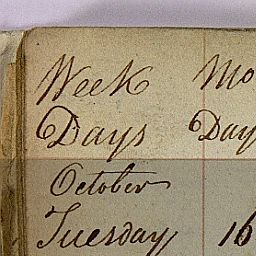 Week Mo
Days Day
October
Tuesday 16